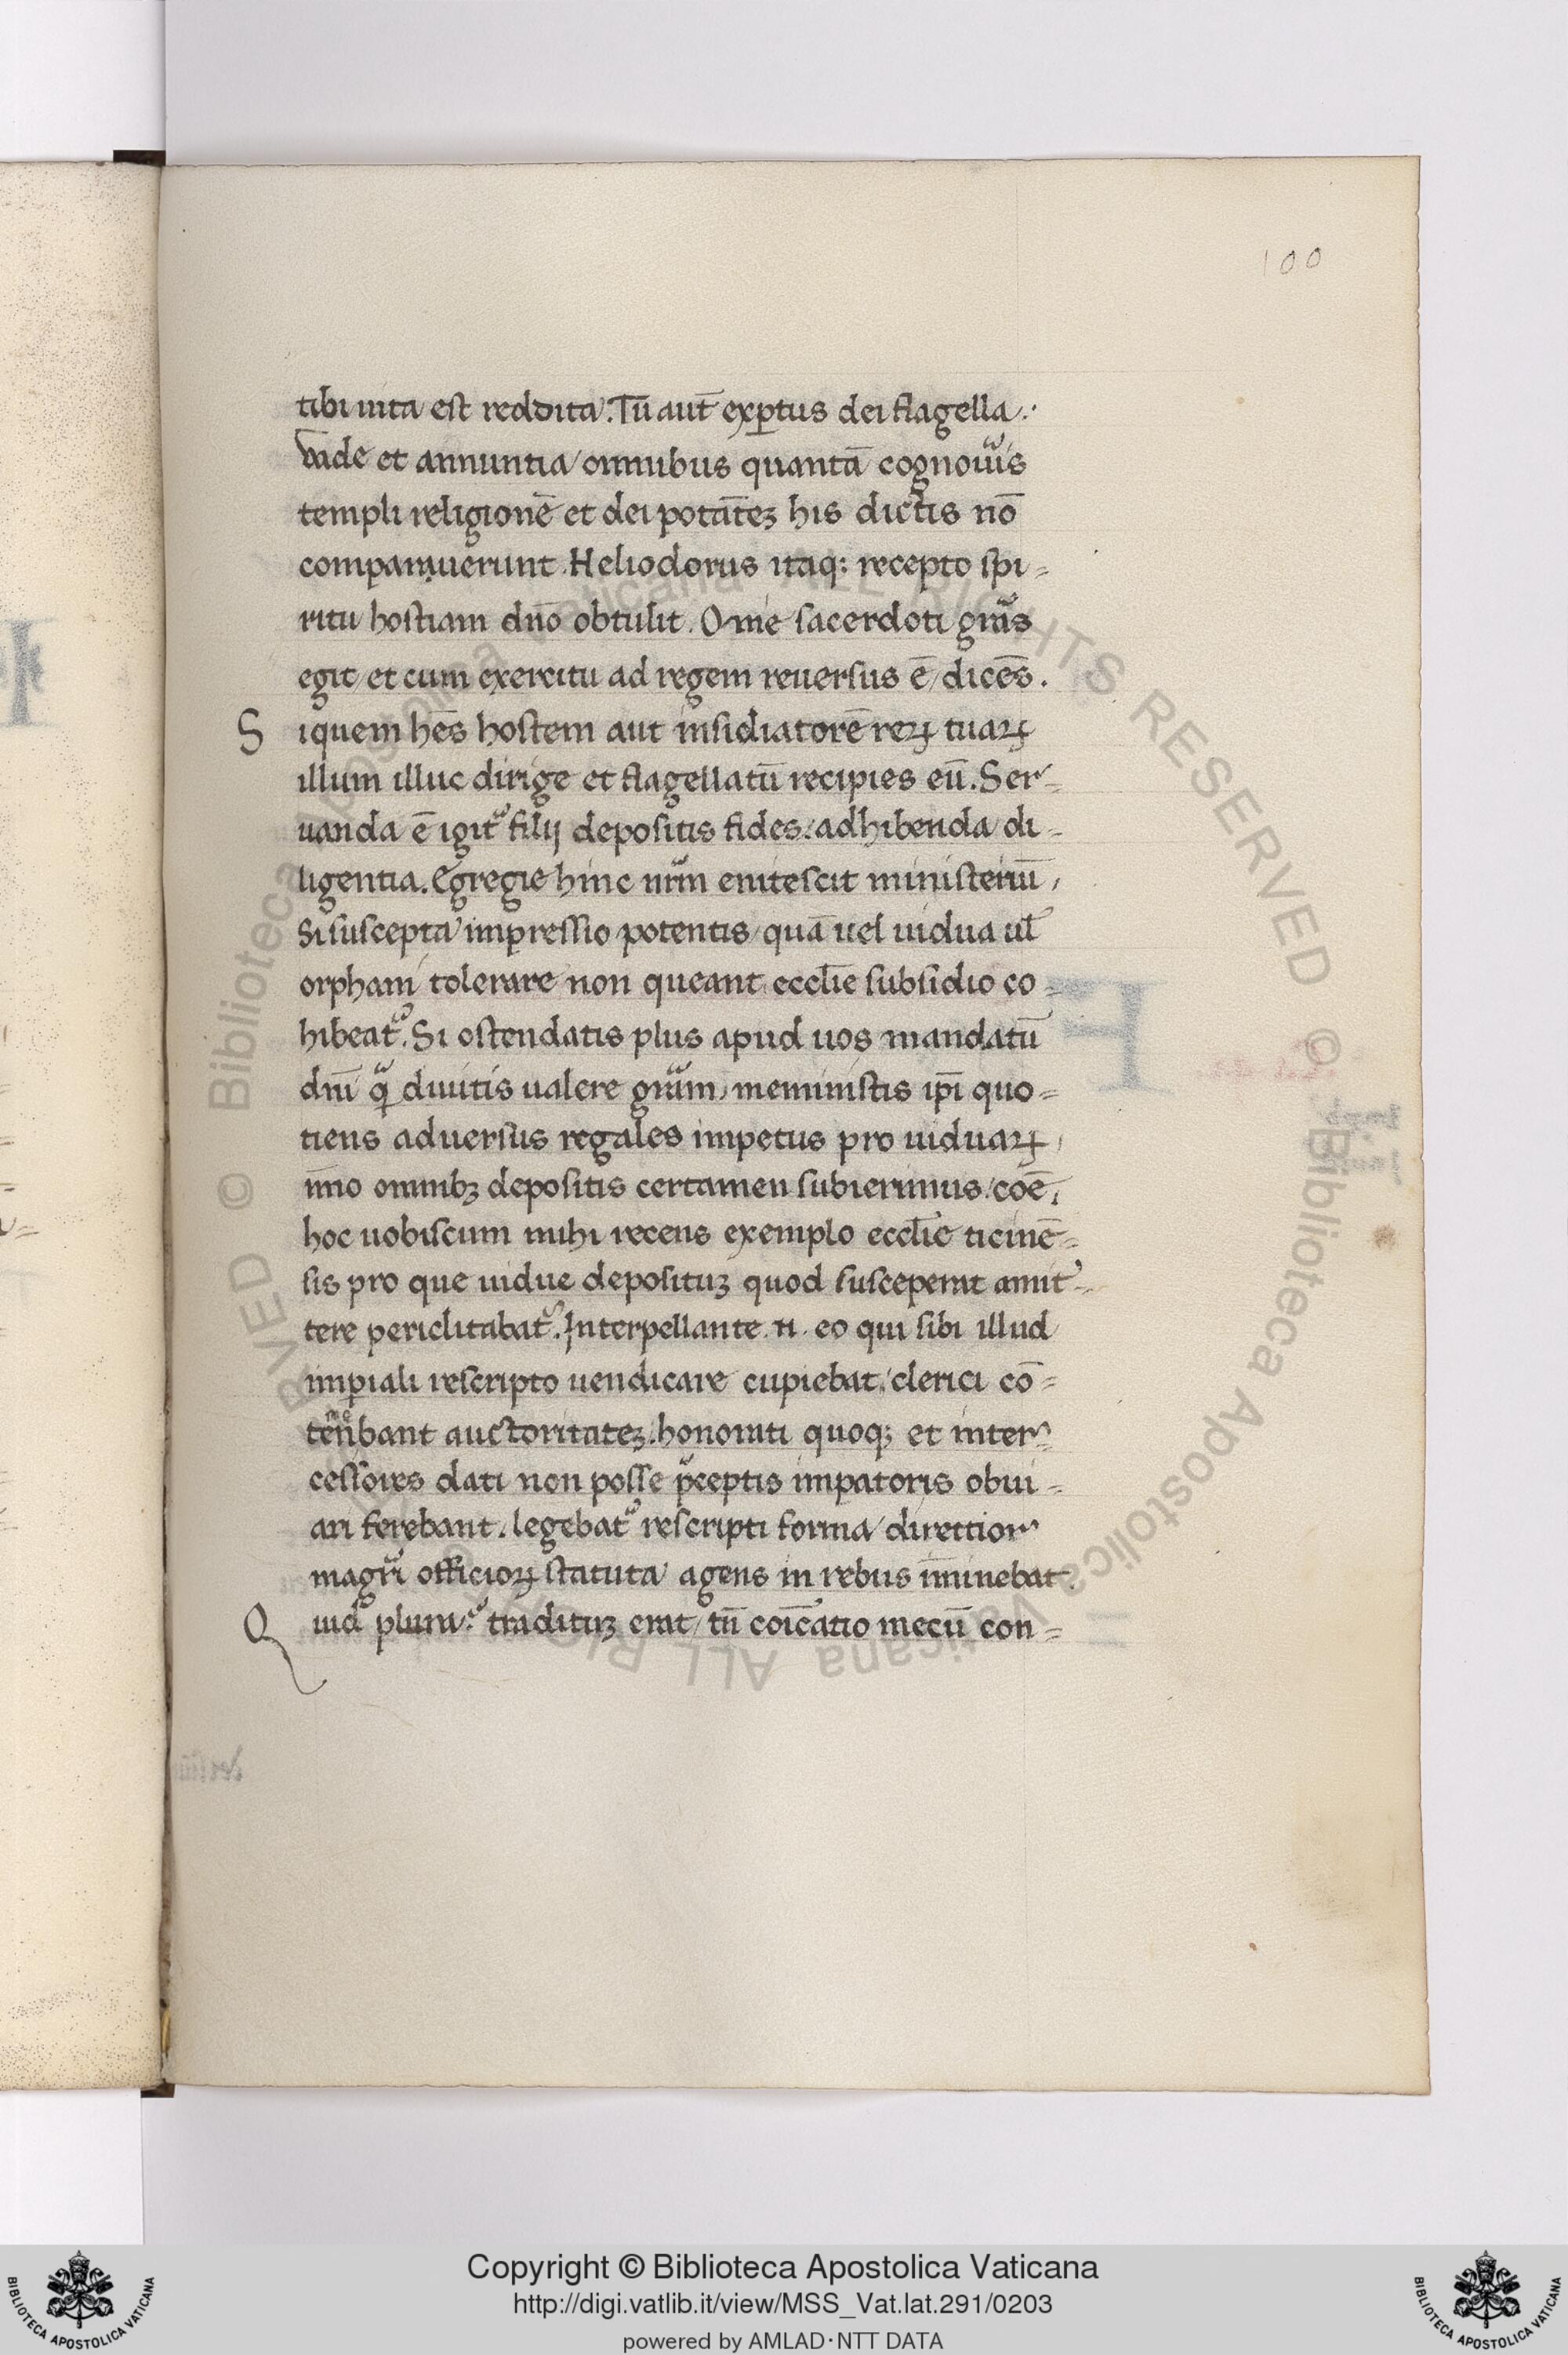 100
tibi uita est reddita. Tu᷑ aut̄ exꝑtus dei flagella.
vade et annuntia omnibus quantā cognouiˢs
templi religionē et dei potātēꝫ his dictis nō
comparuerunt. Heliodorus itaqꝫ recepto spi=
ritu hostiam dn̄o obtulit. Onie sacerdoti gr̄as
egit et cum exercitu ad regem reuersus ē dicēs.
S iquem hēs hostem aut insidiatorē reꝝ tuaꝝ
illum illuc dirige et flagellatū recipies eū. Ser=
uanda ē igit᷑ filij depositis fides: adhibenda di=
ligentia. Egregie hinc nr̄m enitescit ministeriū,
Si suscepta imp̱ressio potentis quā uel uidua ul̄
orphani tolerare non queant ecclīe subsidio co=
hibeat᷑. Si ostendatis plus apud uos mandatū
dn̄i qͣ diuitis ualere gr̄am, meministis ip̄i quo=
tiens aduersus regales impetus pro uiduaꝝ,
īmo omnibꝫ depositis certamen subierimus. coē,
hoc uobiscum mihi recens exemplo ecclīe ticinē=
sis pro que uidue deposituꝫ quod susceperat amit=
tere periclitabat᷑. Interpellante .n. eo qui sibi illud
imꝑiali rescripto uendicare cupiebat, clerici cō=
tēn̄bant auctoritateꝫ. honorati quoqꝫ et inter=
cessores dati non posse p̄ceptis imꝑatoris obui=
ari ferebant. legebat᷑ rescripti forma direttior
magr̄i officioꝝ statuta agens in rebus īminebat.
Q uid plura? traditūꝫ erat, tn̄ coīcatio mecū con=
Copyright © Biblioteca Apostolica Vaticana
http://digi.vatlib.it/view/MSS_Vat.lat.291/0203
powered by AMLAD·NTT DATA
BIBLIOTECA APOSTOLICA VATICANA
BIBLIOTECA APOSTOLICA VATICANA